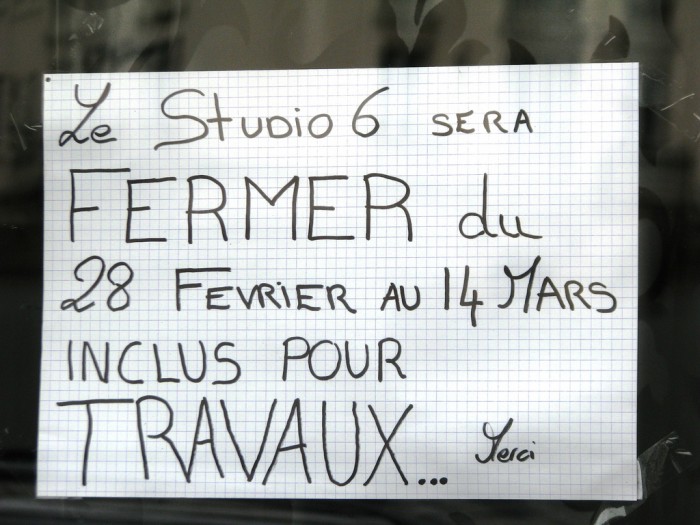 Le Studio 6 SERA
FERMER du
28 FEVRIER AU 14 MARS
INCLUS POUR
TRAVAUX... Merci